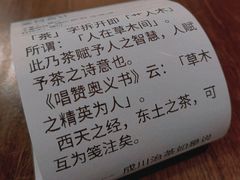 「茶」字拆开即「艹人木」
所谓：「人在草木间」。
此乃茶赋予人之智慧，人赋
予茶之诗意也。
《唱赞奥义书》云：「草木
之精英为人」。
西天之经，东土之茶，可
互为笺注矣。